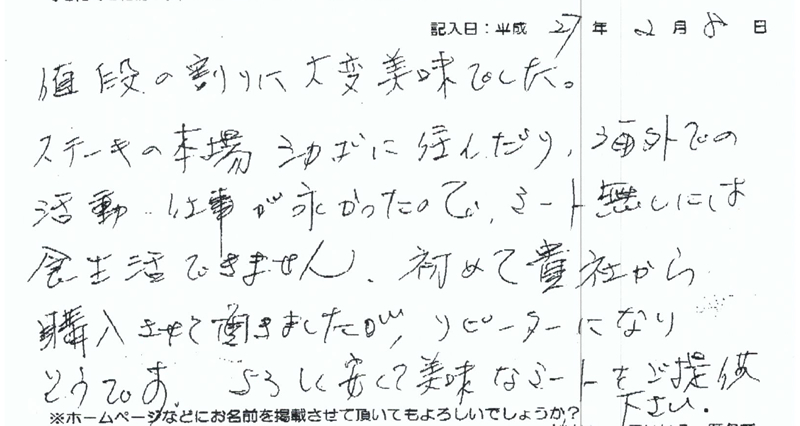 記入日：平成 27 年 2 月 8 日
値段の割りに大変美味でした。
ステーキの本場 に住んだり、海外での
活動 仕事が永かったので、ミート無しには
食生活できません、初めて貴社から
購入させて頂きましたが、リピーターになり
そうです。よろしく安くて美味なミートをご提供
下さい．
※ホームページなどにお名前を掲載させて頂いてもよろしいでしょうか？